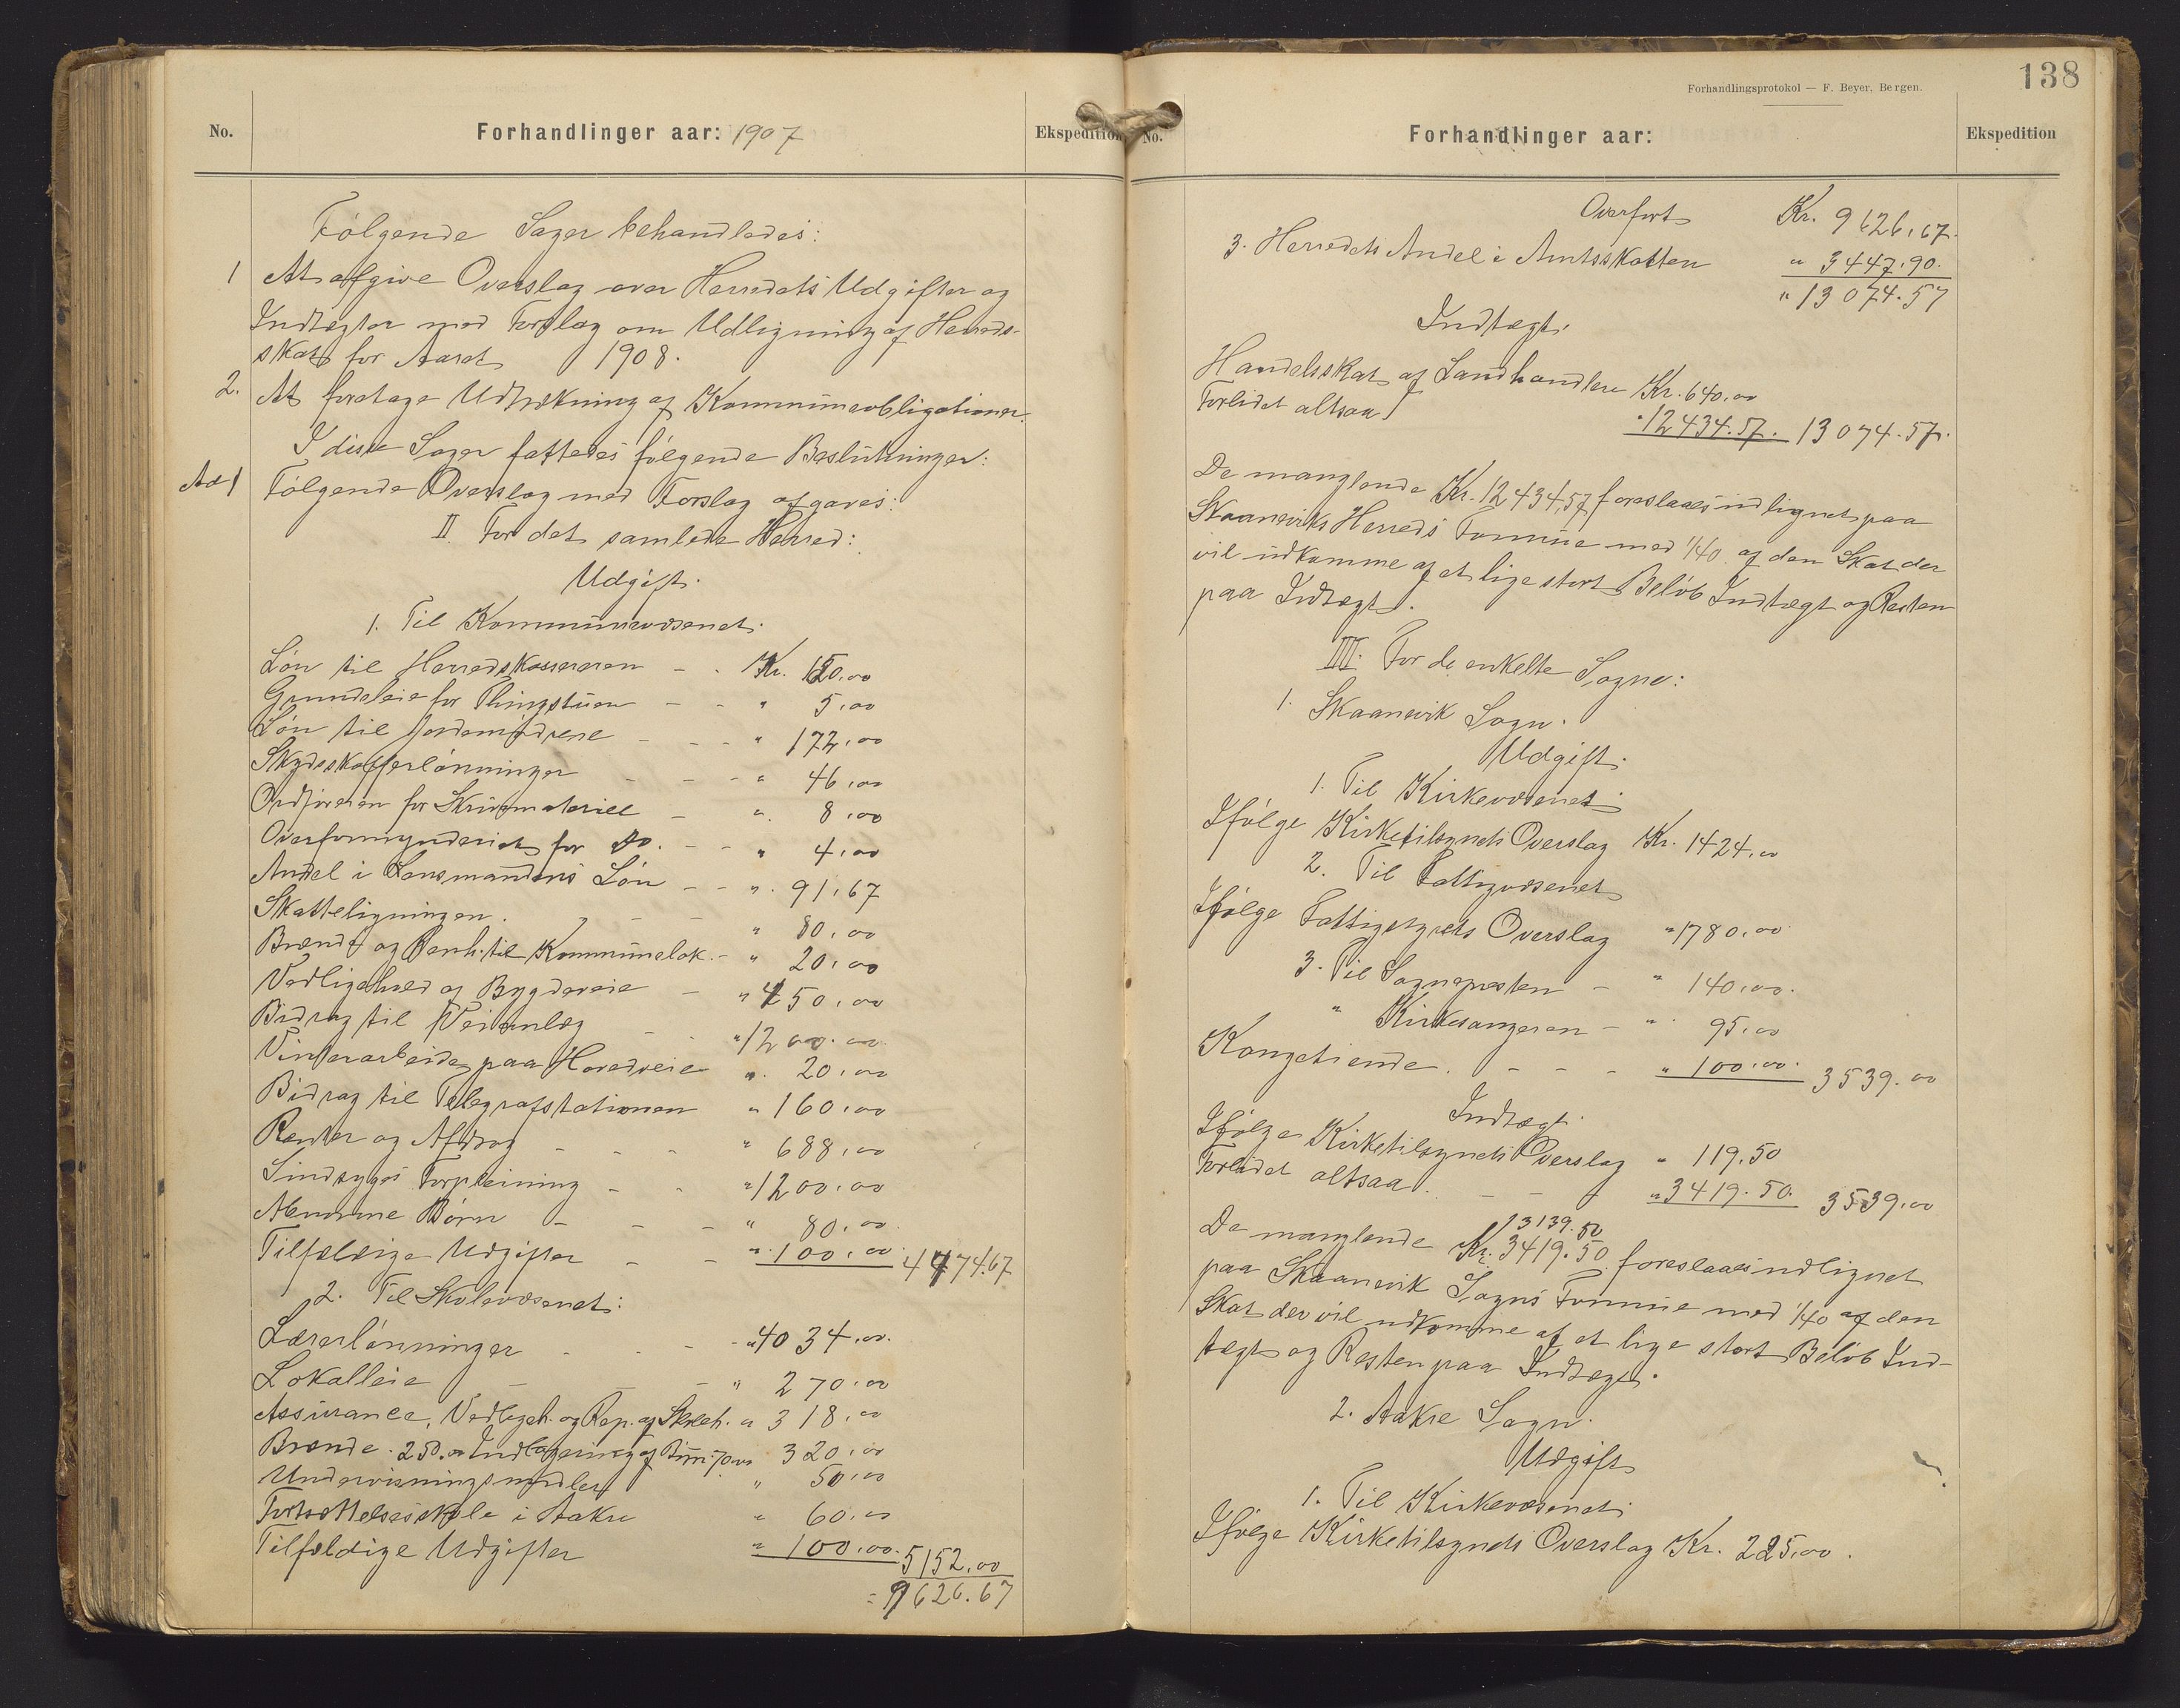 No.
Forhandlinger aar: 1907
Ekspedition
Følgende Sager behandledes:
1 At afgive Overslag over Herredets Udgifter og
Indtægter med Forslag om Udligning af Herreds-
skat for Aaret 1908.
2. At foretage Udtrækning af Kommuneobligationer.
I disse Sager fattedes følgende Beslutninger:
Ad 1 Følgende Overslag med Forslag afgaves:
II. For det samlede Herred:
Udgift.
1. Til Kommunevæsenet.
Løn til Herredskassereren - - Kr. 150,00
Grundeleie for Thingstuen - - " 5,00
Løn til Jordemødrene - - - " 172,00
Skydsskafferlønninger - - - " 46,00
Ordføreren for Skrivemateriel - " 8,00
Overformynderiet for do. - - " 4,00
Andel i Lensmandens Løn - - " 91,67
Skatteligningen. - - - " 80,00
Brænde og Renh. til Kommunelok. - " 20,00
Vedligehold af Bygdeveie - " 450,00
Bidrag til Veianlæg - " 1200.00
Vinterarbeide paa Hovedveie " 20,00
Bidrag til Telegrafstationen " 160,00
Renter og Afdrag - - - " 688,00
Sindsyges Forpleining - - " 1200,00
Abnorme Børn - - - " 80,00
Tilfældige Udgifter - - " 100,00 4474.67
2. Til Skolevæsenet:
Lærerlønninger - - - " 4034,00.
Lokalleie - - - " 270,00
Assurance, Vedligeh. og Rep. af Skoleh. " 318,00
Brænde. 250.00 Indlogering af Børn 70,00 320,00
Undervisningsmidler " 50,00
Fortsættelsesskole i Aakre " 60,00
Tilfældige Udgifter " 100,00. 5152,00
= 9626.67
Forhandlingsprotokol — F. Beyer, Bergen.
138
No.
Forhandlinger aar:
Ekspedition
Overført Kr. 9626,67.
3. Herredets Andel i Amtsskatten " 3447.90.
" 13074.57
Indtægt.
Handelsskat af Landhandlere Kr. 640,00
Forlidet altsaa " 12434.57. 13074.57.
De manglende Kr. 12434,57 foreslaaes udlignet paa
Skaaneviks Herreds Formue med 1/40 af den Skat der
vil udkomme af et lige stort Beløb Indtægt og Resten
paa Indtægt.
III. For de enkelte Sogne:
1. Skaanevik Sogn.
Udgift.
1. Til Kirkevæsenet
Ifølge Kirketilsynets Overslag Kr. 1424,00
2. Til Fattigvæsenet
Ifølge Fattigstyrets Overslag " 1780,00
3. Til Sognepresten - " 140,00.
" Kirkesangeren - " 95,00
Kongetiende. - - - " 100,00. 3539.00
Indtægt.
Ifølge Kirketilsynets Overslag " 119.50
Forlidet altsaa. - - " 3419.50. 3539,00
3139.50
De manglende Kr. 3419.50 foreslaaes udlignet
paa Skaanevik Sogns Formue med 1/40 af den
Skat der vil udkomme af et lige stort Beløb Ind-
tægt og Resten paa Indtægt.
2. Aakre Sogn.
Udgift
1. Til Kirkevæsenet.
Ifølge Kirketilsynets Overslag Kr. 225,00.